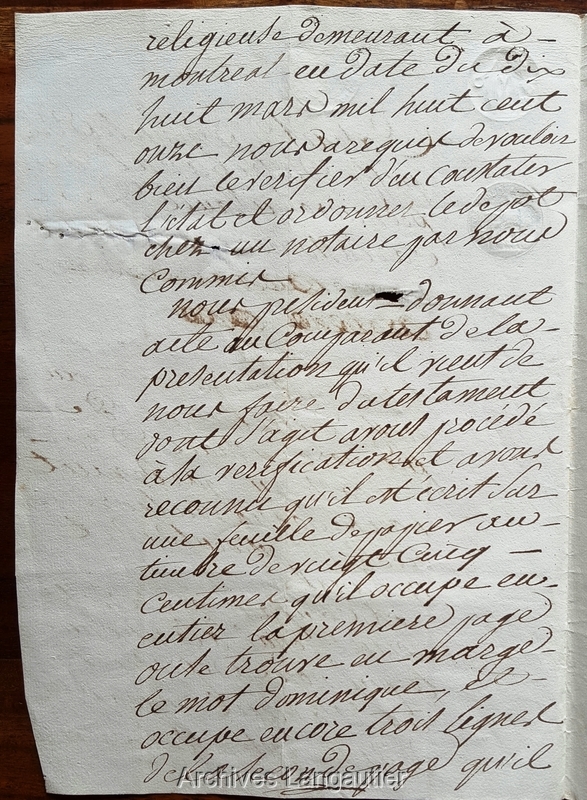 religieuse demeurant à -
montreal en date du dix
huit mars mil huit cent
onze nous a requis de vouloir
bien le verifier d'en constater
l'état et ordonner le depot
chez un notaire par nous
Commis
nous president - donnant
acte au Comparant de la -
presentation qu'il vient de
nous faire du testament
dont s'agit avons procédé
a la verification et avons
reconnu qu'il est ecrit sur
une feuille de papier au -
timbre de vingt Cinq -
Centimes qu'il occupe en -
entier la premiere page
ou se trouve en marge -
le mot dominique, et -
occupe encore trois lignes
de la seconde page qu'il
Archives Langautier